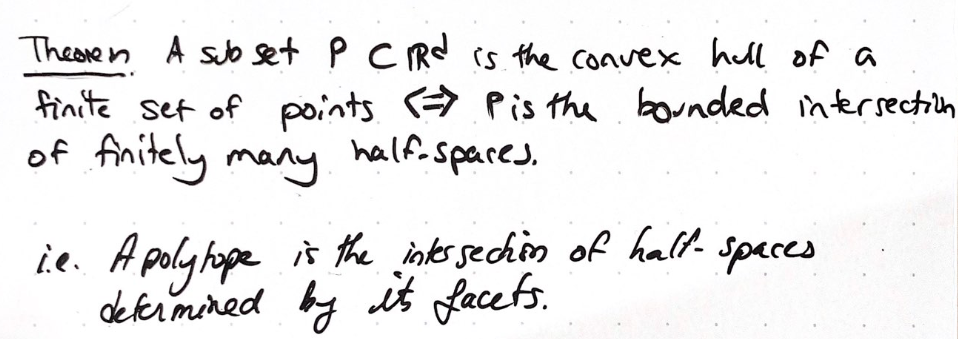 Theorem A subset P ⊂ ℝᵈ is the convex hull of a
finite set of points <=> P is the bounded intersection
of finitely many half-spaces.
i.e. A polytope is the intersection of half-spaces
determined by its facets.